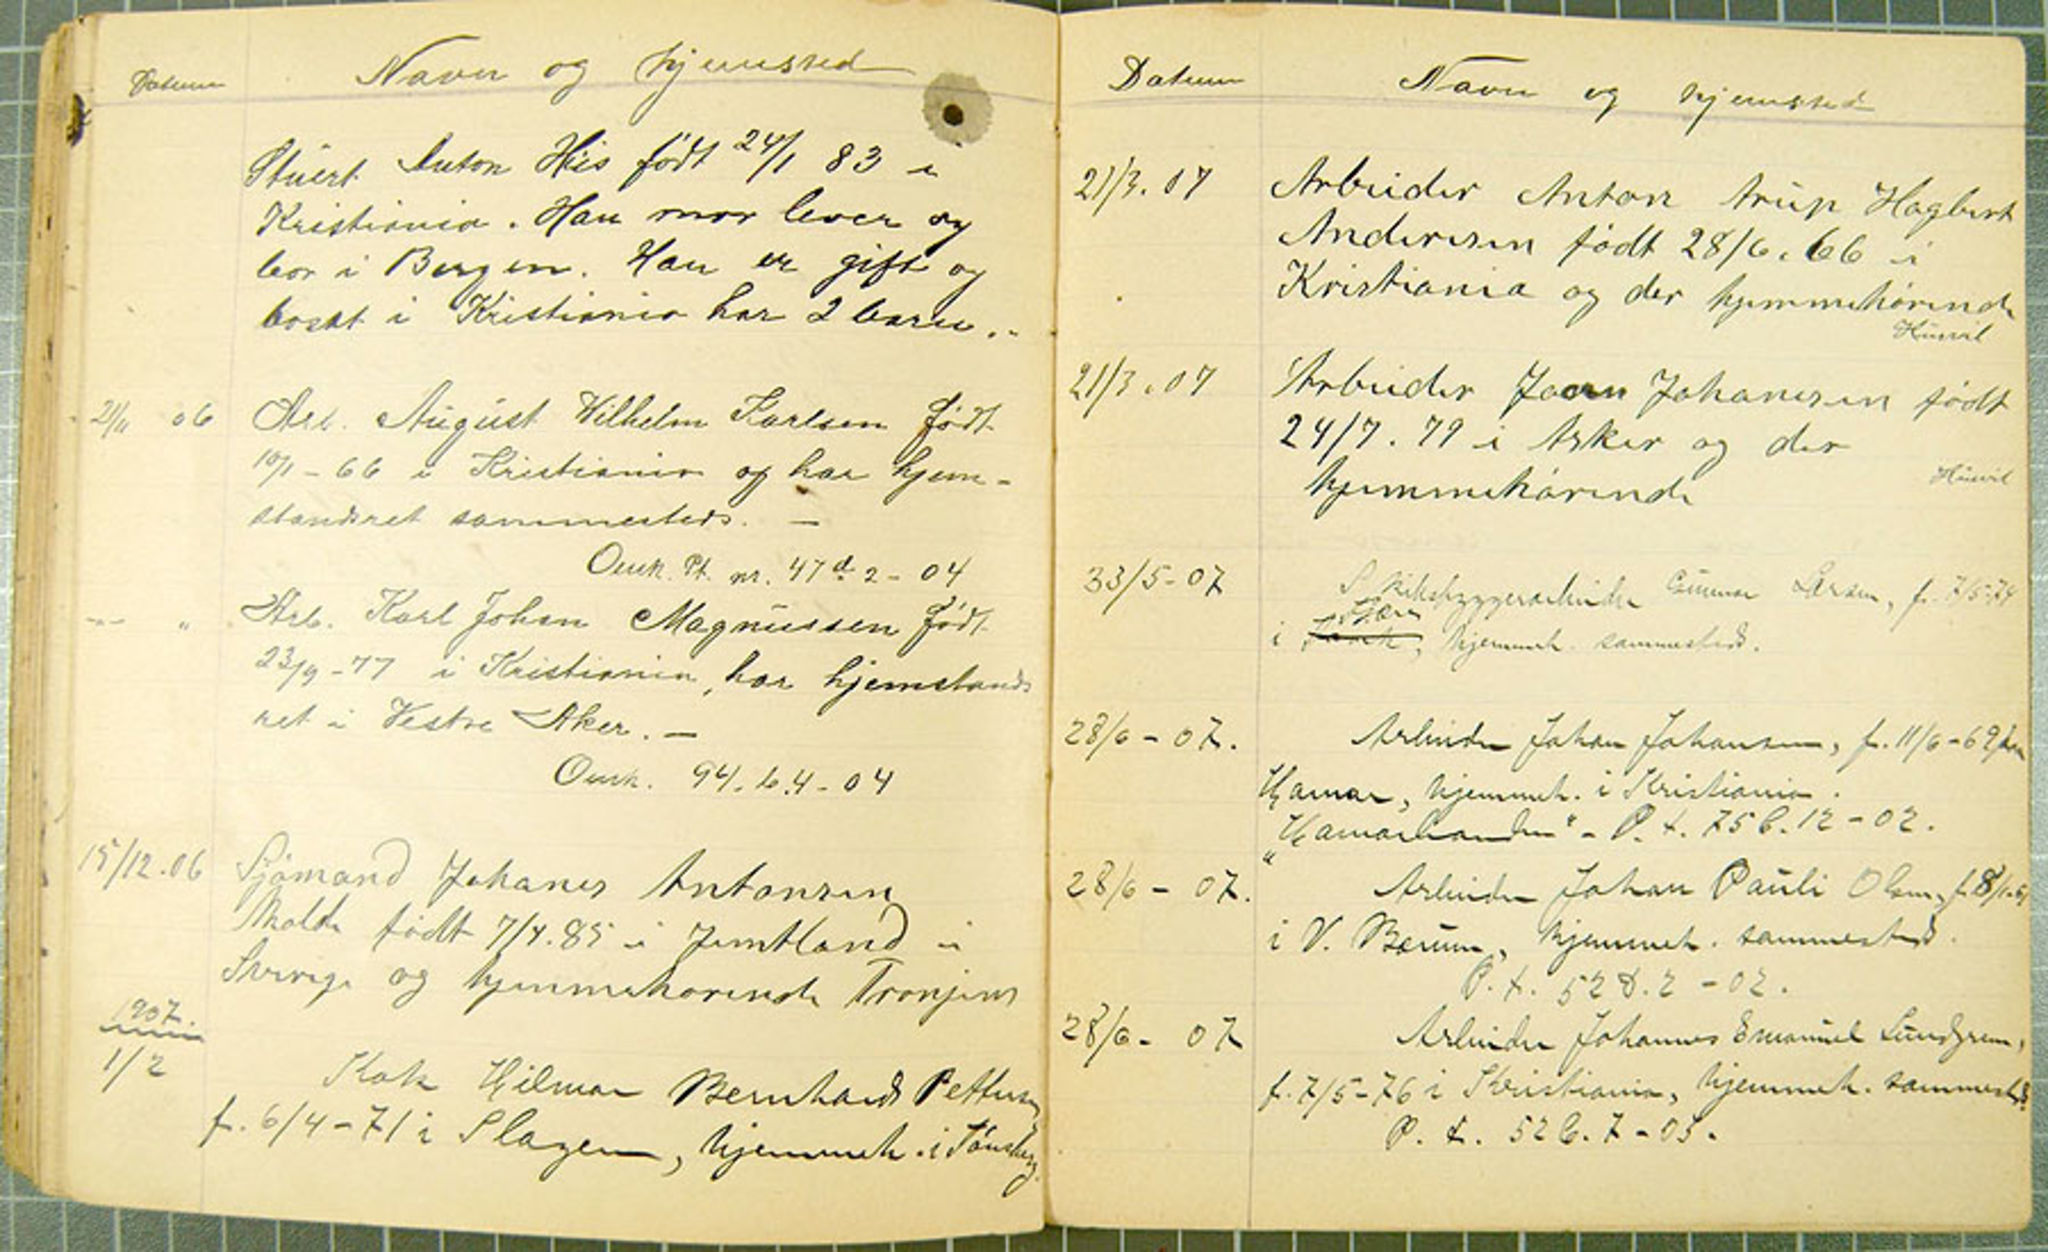 Datum Navn og hjemsted
Stuert Anton His født 24/1 83 i
Kristiania. Han mor lever og
bor i Bergen. Han er gift og
bosat i Kristiania har 2 barn.
21/11 06 Arb. August Wilhelm Karlsen født
10/1-66 i Kristiania og har hjem-
standsret sammesteds. —
Omk. Pt. nr. 47 d 2-04
-"- " Arb. Karl Johan Magnussen født
23/9-77 i Kristiania, har hjemstands
ret i Vestre Aker. —
Omk. 94. b.4-04
15/12.06 Sjømand Johanes Antonsen
Molde født 7/4.85 i Jemtland i
Sverige og hjemmehørende Tronjem
1907.
1/2 Kok Hilmar Bernhard Pettersen
f. 6/4-71 i Slagen, hjemmeh. i Tønsberg.
Datum Navn og hjemsted
21/3.07 Arbeider Anton Arup Hagbert
Andersen født 28/6.66 i
Kristiania og der hjemmehørende
Husvil
21/3.07 Arbeider Johansen født
24/7.79 i Asker og der
hjemmehørende Husvil
33/5-07 Gunnar Larsen, f. 7/5-74
i hjemmeh. sammesteds.
28/6-07. Arbeider Johan Johansen, f. 11/6-69
Hamar, hjemmeh. i Kristiania.
"Hamarhanden" - P.t. 75 b. 12-02.
28/6-07. Arbeider Johan Pauli Olsen, f. 8/1
i V. Bærum, hjemmeh. sammesteds.
P.t. 52 d. 2-02.
28/6-07 Arbeider Johannes Emanuel Lundgren,
f. 7/5-76 i Kristiania, hjemmeh. sammesteds.
P.t. 52 b. 7-05.